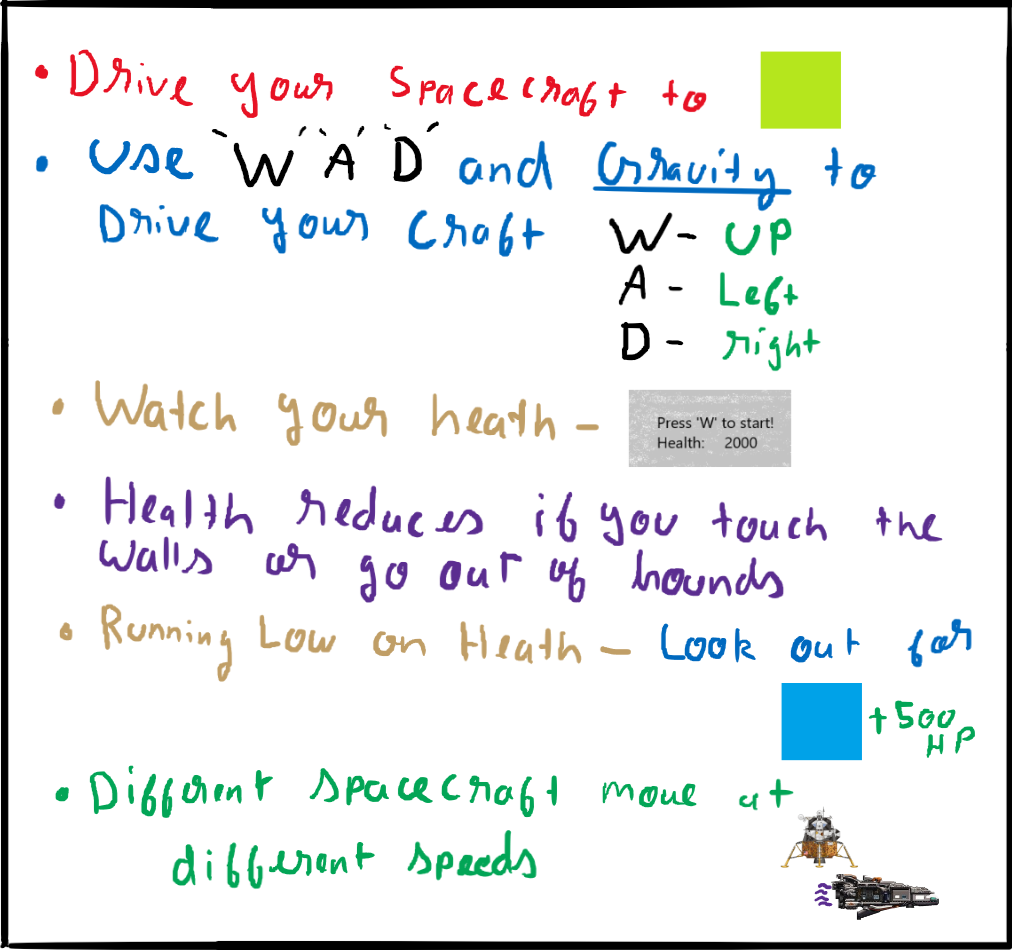 • Drive your Spacecraft to
• Use "W" "A" "D" and Gravity to
Drive your Craft
W - UP
A - Left
D - right
• Watch your heath -
Press 'W' to start!
Health: 2000
• Health reduces if you touch the
walls or go out of bounds
• Running Low on Heath - Look out for
+500
HP
• Different spacecraft move at
different speeds